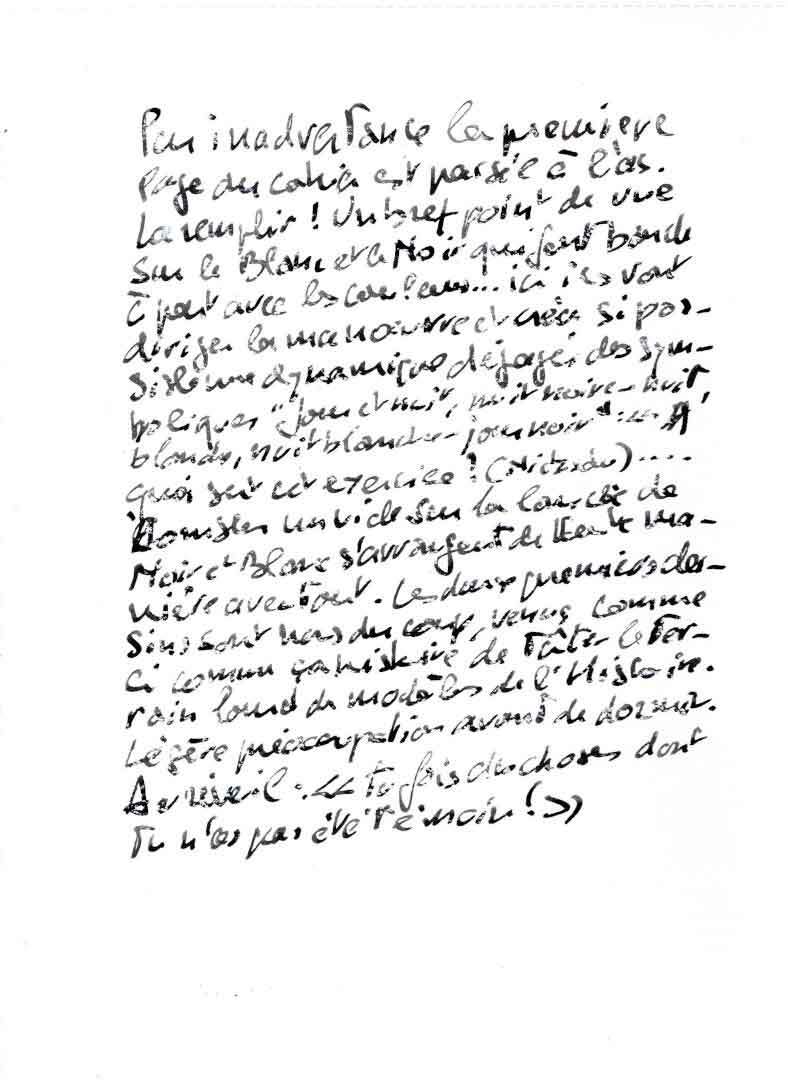 Par inadvertance la première
page du cahier est passée à l'as.
La remplir ! Un bref point de vue
sur le Blanc et le Noir qui font bande
à part avec les couleurs... ici ils vont
diriger la manoeuvre et créer si pos-
sible une dynamique dégagée des sym-
boliques "Jour et nuit, nuit noire - nuit
blanche, nuit blanche - jour noir"
quoi sert cet exercice ? (Nietzsche) .....
un vide sur la
Noir et Blanc s'arrangent de toute ma-
nière avec tout. Les deux premiers des-
sins sont nés du coup, venus comme
ci comme ça histoire de tâter le ter-
rain lourd de modèles de l'Histoire.
Légère préoccupation avant de dormir.
Au réveil : << Tu fais des choses dont
Tu n'as pas été témoin ! >>